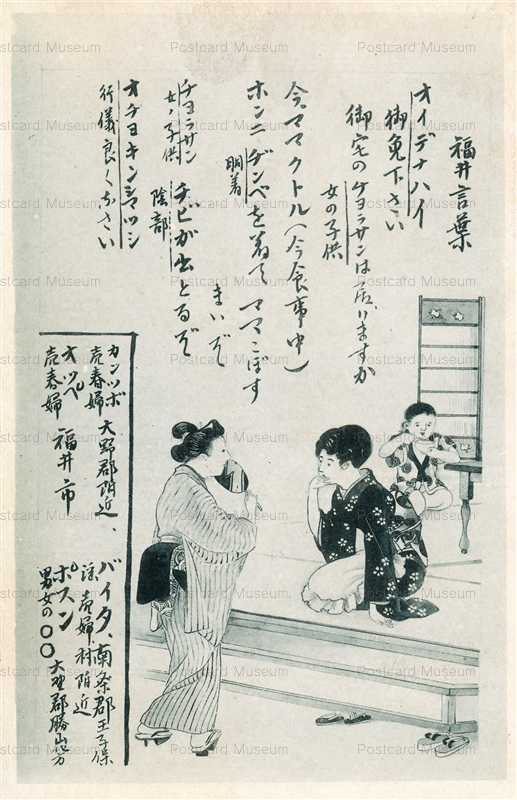 福井言葉
オイデナハイ
御免下さい
御宅のチヨラサンは居りますか
女の子供
今ママクトル(今食事中)
ホンニデンベを着てママこぼす
胴着
まいぞ
チヨラサン
女ノ子供
チビが出とるぞ
陰部
オチヨキンシナツシ
行儀良くなさい
カンツボ
売春婦 大野郡附近、
オツペ
売春婦 福井市
バイタ、南条郡王子保
淫売婦 村附近
ポスン
男女の〇〇 大野郡勝山地方
Postcard Museum